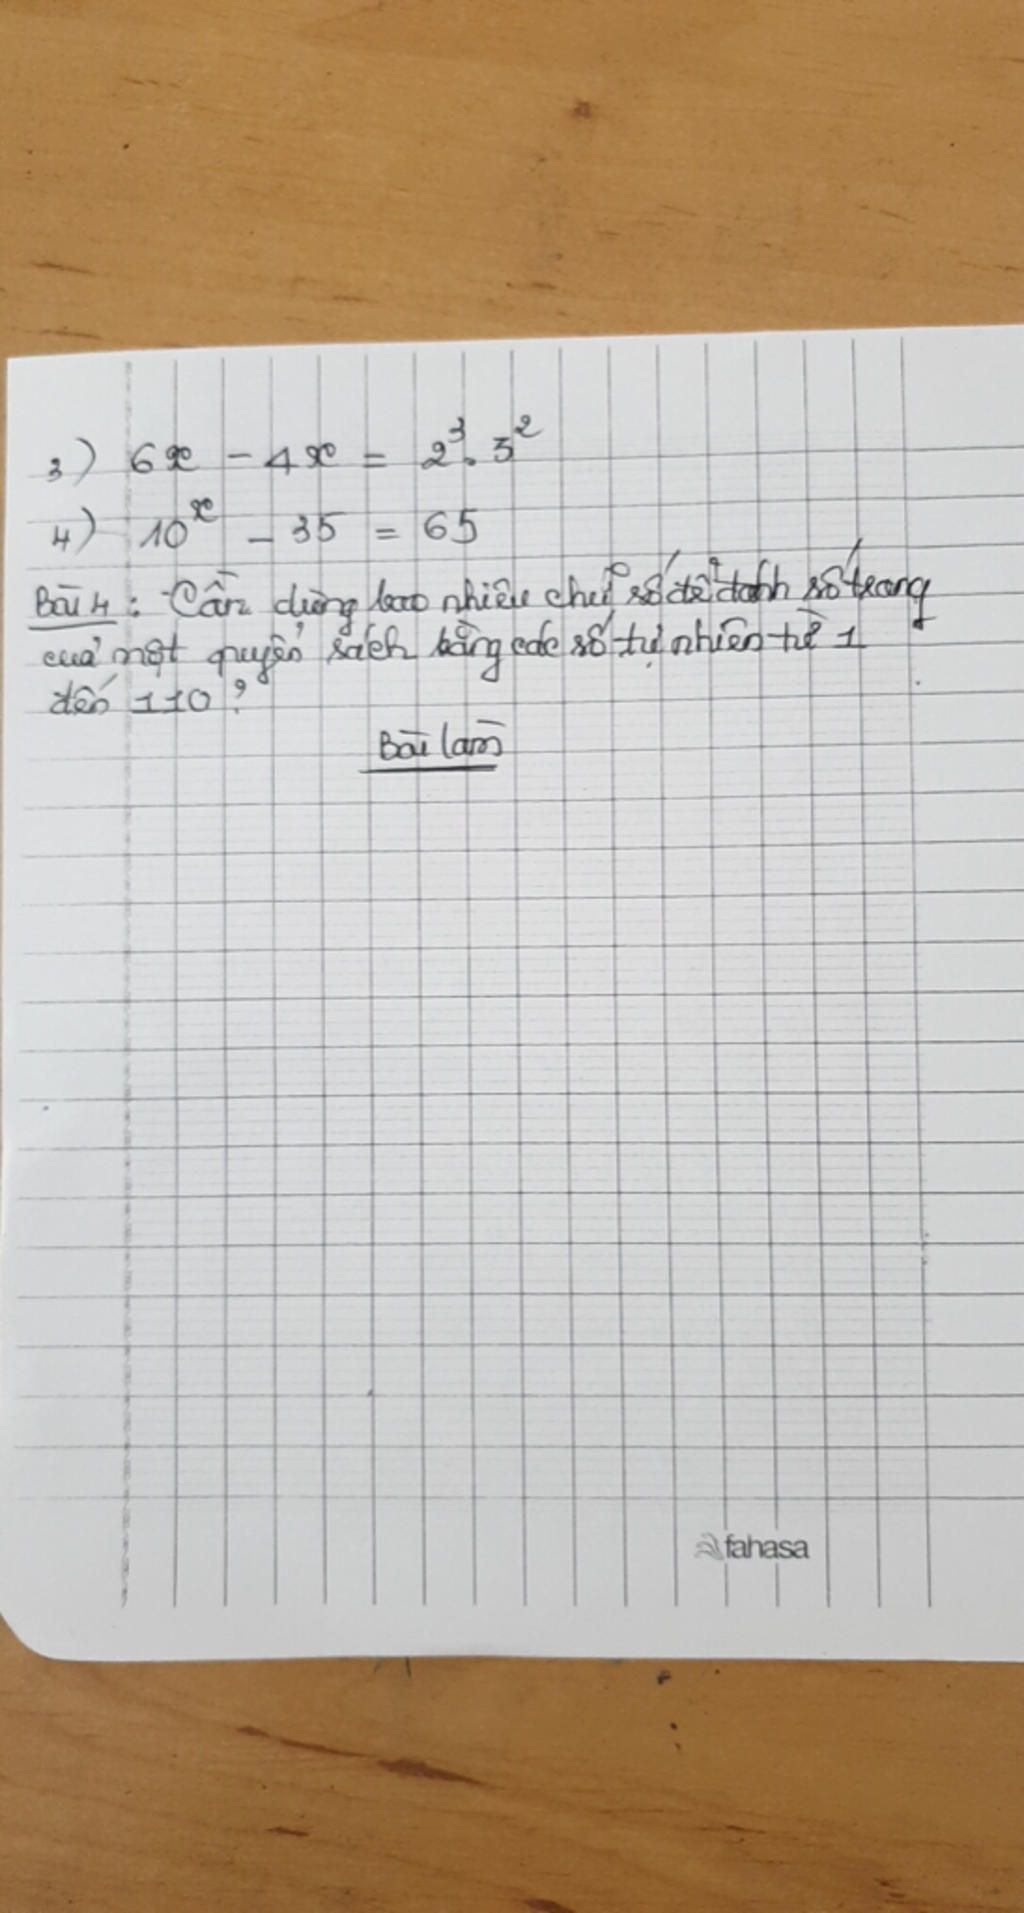 3) 6x - 4x = 2³. 3²
4) 10ˣ - 35 = 65
Bài 4: Cần dùng bao nhiêu chữ số để đánh số trang
của một quyển sách bằng các số tự nhiên từ 1
đến 110?
Bài làm
fahasa